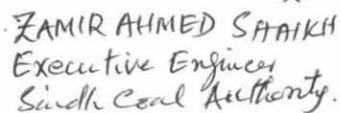 ZAMIR AHMED SHAIKH
Executive Engineer
Sindh Coal Authority.